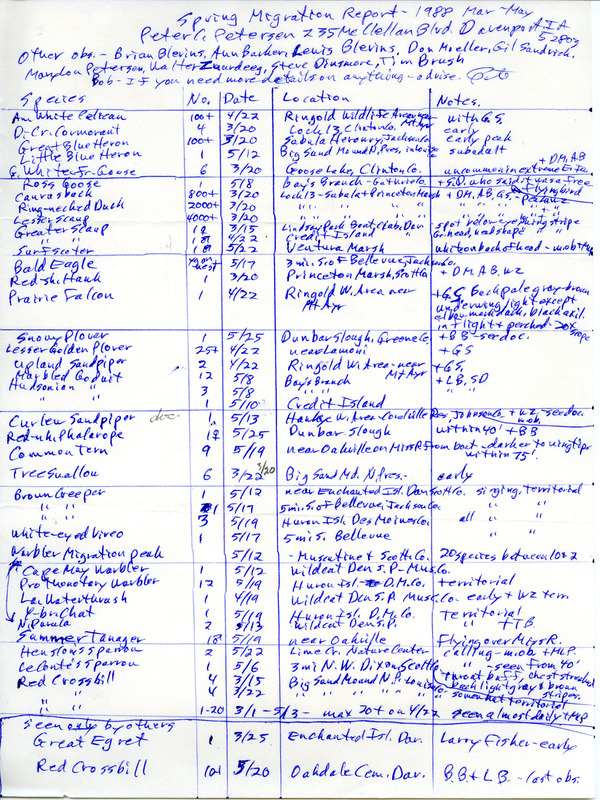 Spring Migration Report - 1988 Mar - May
Peter C. Petersen 235 McClellan Blvd. Davenport, IA 52803
Other obs. - Brian Blevins, Ann Barker, Lewis Blevins, Don Moeller, Gil Sandrick,
Marydon Petersen, Walter Zuurdeeg, Steve Dinsmore, Tim Brush
Bob - If you need more details on anything - advise. Pete
Species No. Date Location Notes.
Am White Pelican 100+ 4/22 Ringold Wildlife Area near Mt Ayr with G.S.
D.-Cr. Cormorant 4 3/20 Lock 13, Clinton Co. early
Great Blue Heron 100+ 3/20 Sabula Heronry, Jackson Co. early peak
Little Blue Heron 1 5/12 Big Sand Mound N. Pres., in Louisa subadult + DM, AB
G. White-Fr. Goose 6 3/20 Goose Lake, Clinton Co. uncommon in extreme E. Ia.
Ross Goose 1 5/8 Bay's Branch - Guthrie Co. + S.D. who said it was a free flying bird
Canvasback 800+ 3/20 Lock 13 - Sabula + Princeton Marsh + DM, B, G.S. - peak
Ring-necked Duck 2000+ 3/20 " " " " " "
Lesser Scaup 4000+ 3/20 " " " " " "
Greater Scaup 1♀ 3/15 Lindsay Park Boat Club, Dav. spot below eye, wing stripe
" " 1♂ 4/22 Credit Island G. head, wide shape
Surf Scoter 1♂ 5/2 Ventura Marsh white on back of head - m.ob. + MP
Bald Eagle nest 5/17 3 mi. S. of Bellevue, Jackson Co.
Red-sh. Hawk 1 3/20 Princeton Marsh, Scott Co. + D M, A B, WZ
Prairie Falcon 1 4/22 Ringold W. Area near Mt Ayr + G S, Back pale gray-brown underwing light except elbow mark dark, black axil. in flight + perched. 20x scope
Snowy Plover 1 5/25 Dunbar Slough, Greene Co. + B B - see doc.
Lesser Golden Plover 25+ 4/22 near Lamoni + G S
Upland Sandpiper 2 4/22 Ringold W. Area - near Mt Ayr + G S,
Marbled Godwit 12 5/8 Bay's Branch + L B, S D
Hudsonian " 3 5/8 " " " "
1 5/10 Credit Island
Curlew Sandpiper doc. 1 5/13 Hawkeye W. Area - Coralville Res, Johnson Co. + WZ, see doc. m.ob.
Red-nk. Phalarope 1♀ 5/25 Dunbar Slough within 40' + B B
Common Tern 9 5/19 near Oakville on Miss R. from boat - darker to wingtips within 75'.
Tree Swallow 6 3/22 3/20 Big Sand Md. N. Pres. - early
Brown Creeper 1 5/12 near Enchanted Isl. Dav. Scott Co. singing, territorial
" " 1 5/17 5 mi. S. of Bellevue, Jackson Co. " "
" " 3 5/19 Huron Isl. Des Moines Co. all " "
White-eyed Vireo 1 5/17 5 mi S. Bellevue
Warbler Migration peak 5/12 - Muscatine + Scott Co. 20 species between 10 & 2
Cape May Warbler 1 5/12 Wildcat Den S.P. - Musc. Co.
Prothonotary Warbler 12 5/19 Huron Isl. D.M. Co. territorial
La. Waterthrush 1 4/19 Wildcat Den S.P. Musc. Co. early + WZ terr.
Y-br. Chat 1 5/19 Huron Isl. D.M. Co. Territorial
N. Parula 2 5/13 Wildcat Den S.P. " + T B.
Summer Tanager 1♂ 5/19 near Oakville Flying over Miss R.
Henslow's Sparrow 2 5/22 Lime Cr. Nature Center calling - m.ob + M.P.
Le Conte's Sparrow 1 5/6 3 mi N.W. Dixon, Scott Co. " - seen from 40' throat buff, chest streaked back light gray & brown stripes
Red Crossbill 4 3/15 Big Sand Mound N.P. - Louisa Co.
" " 4 3/22 " " " " somewhat territorial
" " 1-20 3/1 - 5/13 - max 20+ on 4/22 seen almost daily + MP
Seen only by others
Great Egret 1 3/25 Enchanted Isl. Dav. Larry Fisher - early
Red Crossbill 10+ 5/20 Oakdale Cem. Dav. B.B. + L B. - last obs.